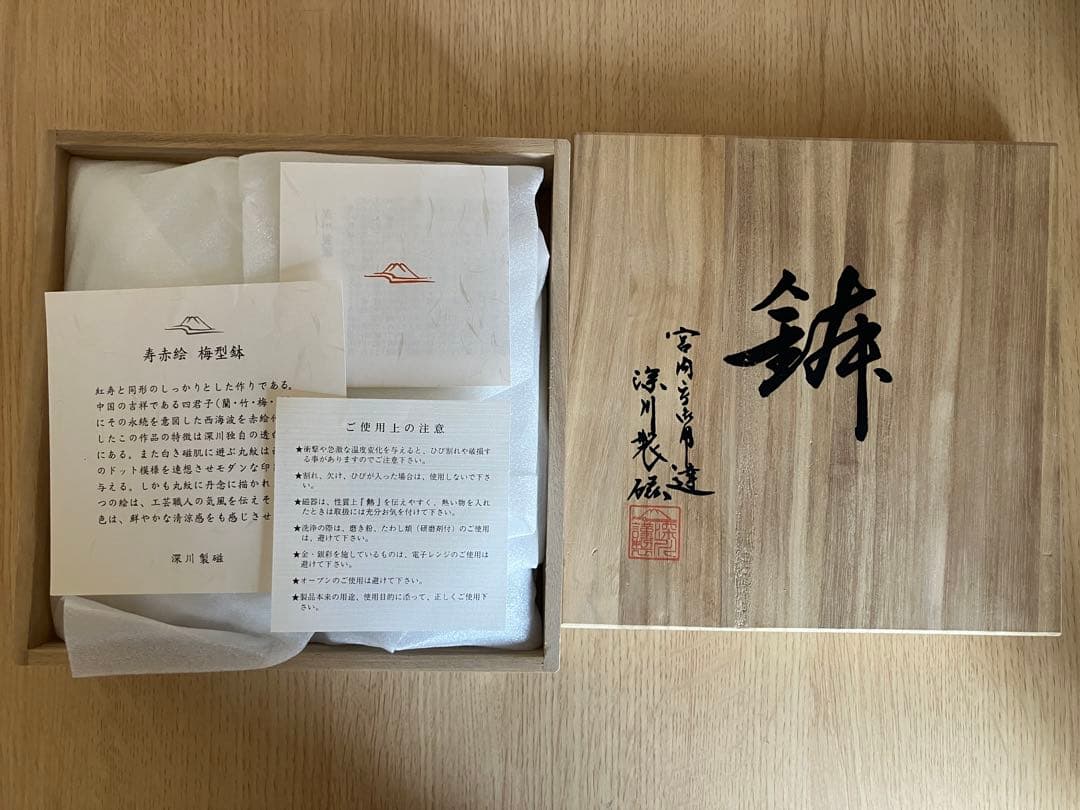 寿赤絵 梅型鉢
紅寿と同形のしっかりとした作りである。
中国の吉祥である四君子(蘭・竹・梅・
にその永続を意図した西海波を赤絵付
したこの作品の特徴は深川独自の透
にある。また白き磁肌に遊ぶ丸紋は
のドット模様を連想させモダンな印
与える。しかも丸紋に丹念に描かれ
つの絵は、工芸職人の気風を伝えそ
色は、鮮やかな清涼感をも感じさせ
深川製磁
ご使用上の注意
★衝撃や急激な温度変化を与えると、ひび割れや破損す
る事がありますのでご注意下さい。
★割れ、欠け、ひびが入った場合は、使用しないで下さ
い。
★磁器は、性質上『熱』を伝えやすく、熱い物を入れ
たときは取扱には充分お気を付けて下さい。
★洗浄の際は、磨き粉、たわし類(研磨剤付)のご使用
は、避けて下さい。
★金・銀彩を施しているものは、電子レンジのご使用は
避けて下さい。
★オーブンのご使用は避けて下さい。
★製品本来の用途、使用目的に添って、正しくご使用下
さい。
鉢
宮内庁御用達
深川製磁